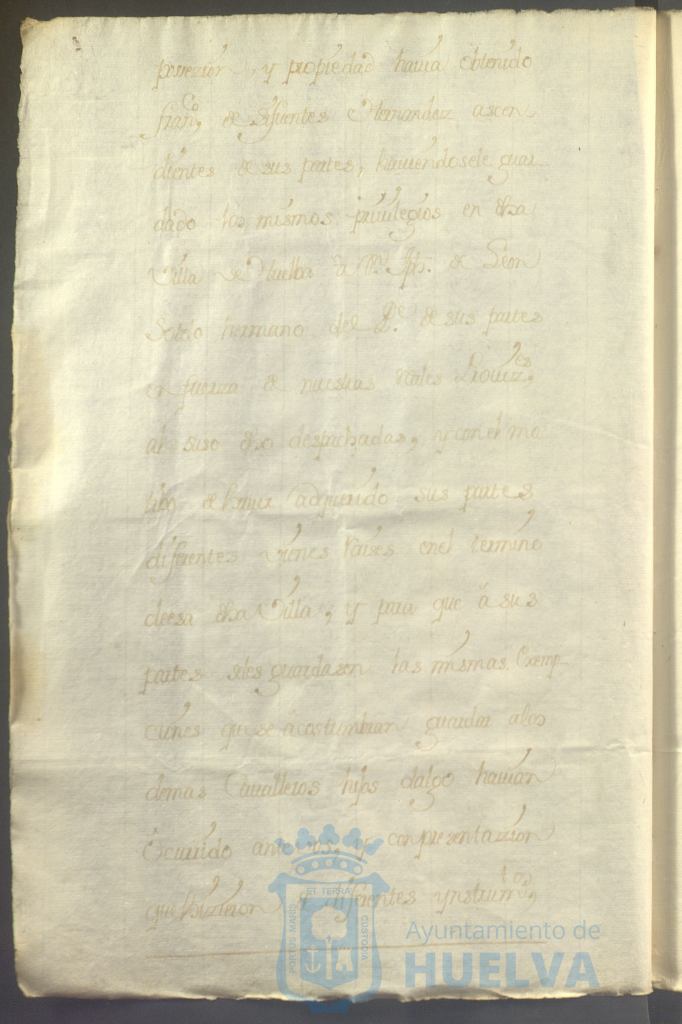 posession, y propiedad havia obtenido
Fran.co de Sifuentes Hernandez ascen
dientes de sus partes, haviendosele guar
dado los mismos privilegios en dha
Villa de Huelba a Dn. Jph. de Leon
Sotelo hermano del de sus partes
en fuerza de nuestras Reales
al suso dho despachadas, y con el mo
tibo de haver adquirido sus partes
diferentes vienes Raises en el termino
de esa dha Villa, y para que á sus
partes seles guardasen las mismas Exemp
ciones que se acostumbran guardar alos
demas Cavalleros hijos dalgo havian
Ocurrido ante vos, y con presentazion
que hizieron de diferentes ynstrum.tos,
PORTUS MARIS ET TERRAE CUSTODIA
Ayuntamiento de
HUELVA